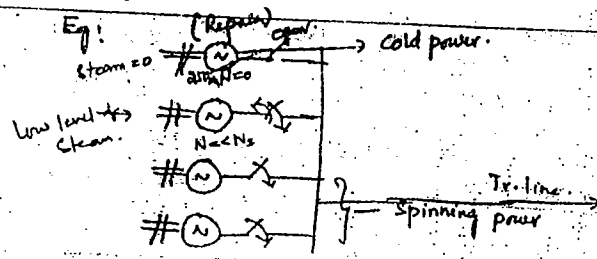 Eg:
(Repair)
open.
Steam=0
N=0
→ Cold power.
Low level of
Steam.
N<<Ns
Tr. line.
Spinning
power